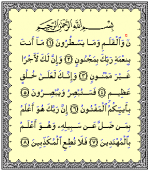 بِسْمِ اللَّهِ الرَّحْمَٰنِ الرَّحِيمِ
نٓ وَالْقَلَمِ وَمَا يَسْطُرُونَ ١ مَا أَنتَ
بِنِعْمَةِ رَبِّكَ بِمَجْنُونٍ ٢ وَإِنَّ لَكَ لَأَجْرًا
غَيْرَ مَمْنُونٍ ٣ وَإِنَّكَ لَعَلَىٰ خُلُقٍ
عَظِيمٍ ٤ فَسَتُبْصِرُ وَيُبْصِرُونَ ٥
بِأَييِّكُمُ الْمَفْتُونُ ٦ إِنَّ رَبَّكَ هُوَ أَعْلَمُ
بِمَن ضَلَّ عَن سَبِيلِهِ وَهُوَ أَعْلَمُ
بِالْمُهْتَدِينَ ٧ فَلَا تُطِعِ الْمُكَذِّبِينَ ٨